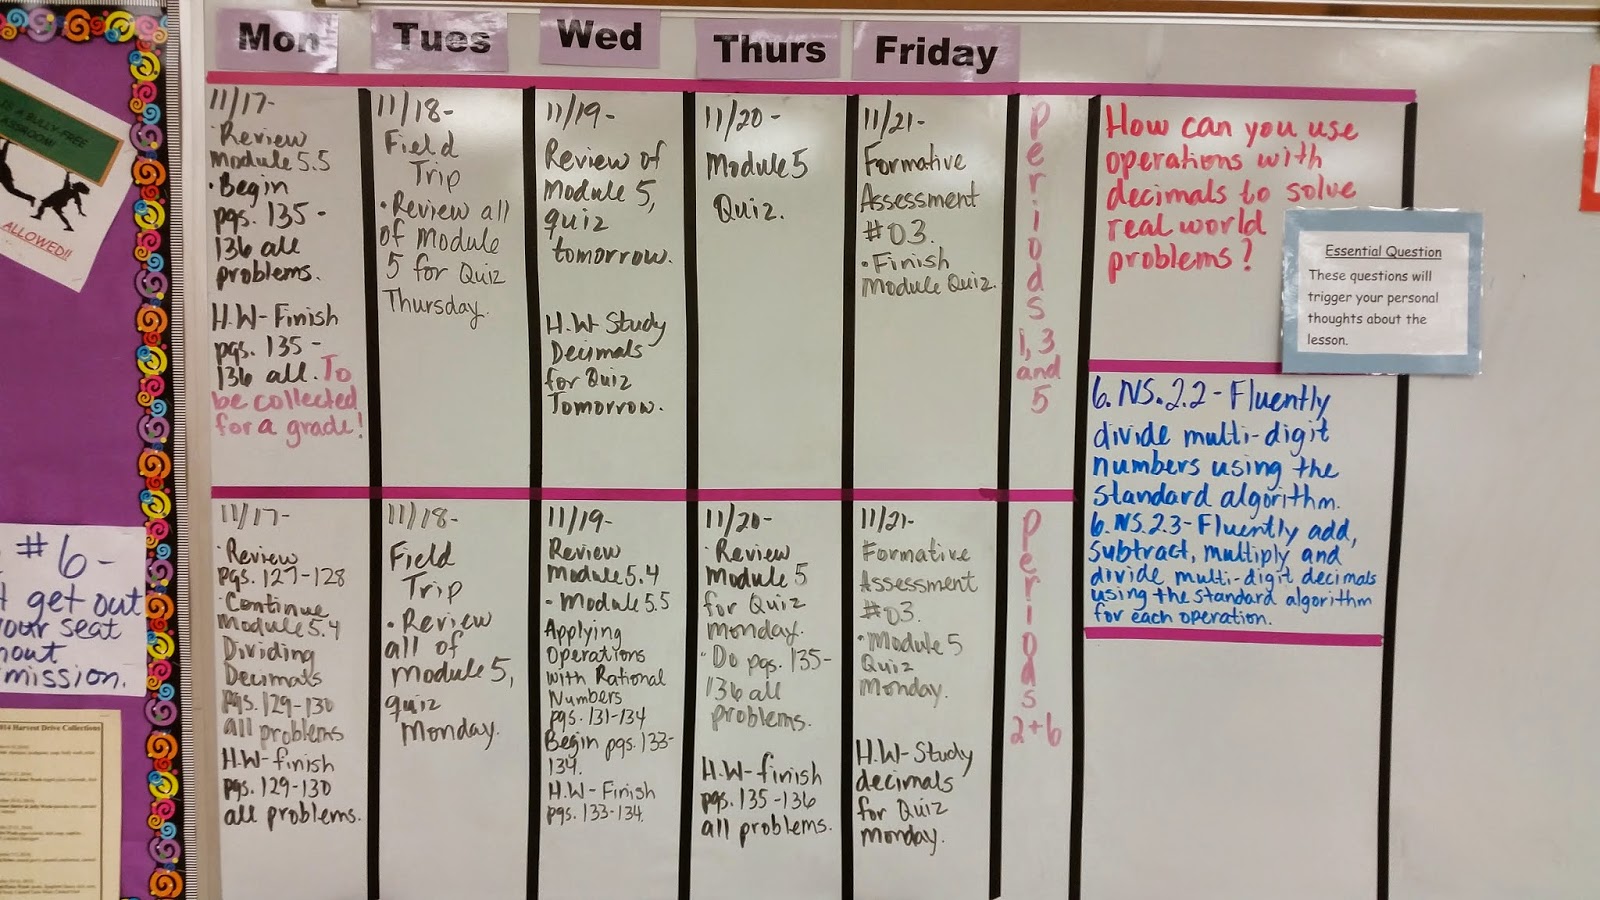 Mon
Tues
Wed
Thurs
Friday
11/17-
· Review
Module 5.5
· Begin
pgs. 135-
136 all
problems.
H.W-Finish
pgs. 135-
136 all. To
be collected
for a grade!
11/18-
Field
Trip
· Review all
of Module
5 for Quiz
Thursday.
11/19-
Review of
Module 5,
quiz
tomorrow.
H.W-Study
Decimals
for Quiz
Tomorrow.
11/20-
Module 5
Quiz.
11/21-
Formative
Assessment
#03.
· Finish
Module Quiz.
Periods
1, 3
and
5
How can you use
operations with
decimals to solve
real world
problems?
Essential Question
These questions will
trigger your personal
thoughts about the
lesson.
6.NS.2.2-Fluently
divide multi-digit
numbers using the
standard algorithm.
6.NS.2.3-Fluently add,
subtract, multiply and
divide multi-digit decimals
using the standard algorithm
for each operation.
11/17-
· Review
pgs. 127-128
· Continue
Module 5.4
Dividing
Decimals
pgs. 129-130
all problems
H.W-finish
pgs. 129-130
all problems.
11/18-
Field
Trip
· Review
all of
Module 5,
quiz
Monday.
11/19-
Review
Module 5.4
· Module 5.5
Applying
Operations
with Rational
Numbers
pgs. 131-134
Begin pgs. 133-
134.
H.W-Finish
pgs. 133-134.
11/20-
· Review
Module 5
for Quiz
Monday.
· Do pgs. 135-
136 all
problems.
H.W-finish
pgs. 135-136
all problems.
11/21-
Formative
Assessment
#03.
· Module 5
Quiz
Monday.
H.W-Study
decimals
for Quiz
Monday.
Periods
2+6
A BULLY FREE
ALLOWED!!
#6-
get out
your seat
mission.
Harvest Drive Collections